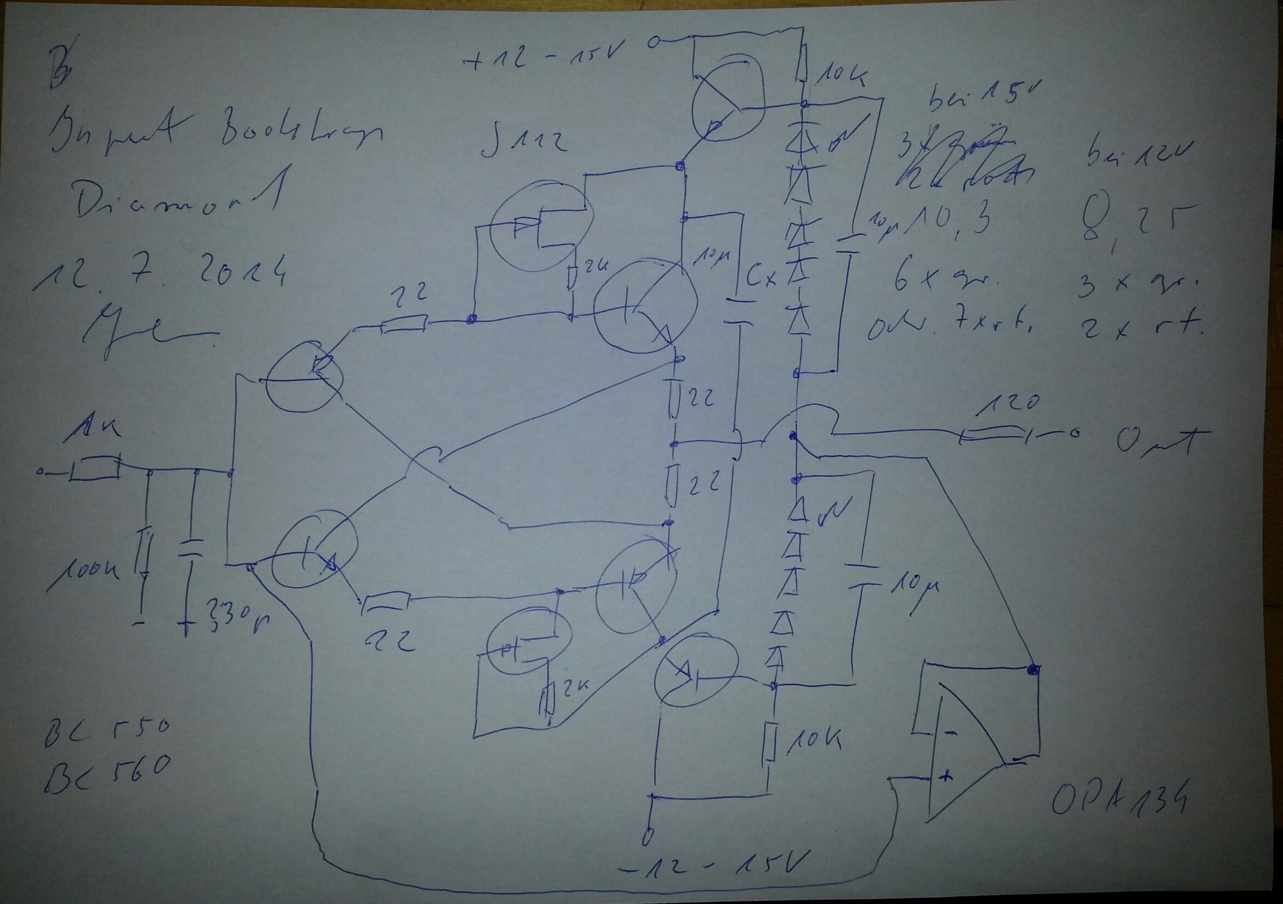 B
Input Bootstrap
Diamond
12. 7. 2014
+12 - 15V
10K
J112
bei 15V
bei 12V
10,3
8,25
6 x gr.
3 x gr.
odr. 7x rt.
2 x rt.
10µ
2K
10µ
Cx
22
22
22
1K
100K
330p
22
2K
120
Out
10µ
10K
BC 550
BC 560
-
+
OPA134
-12 - 15V